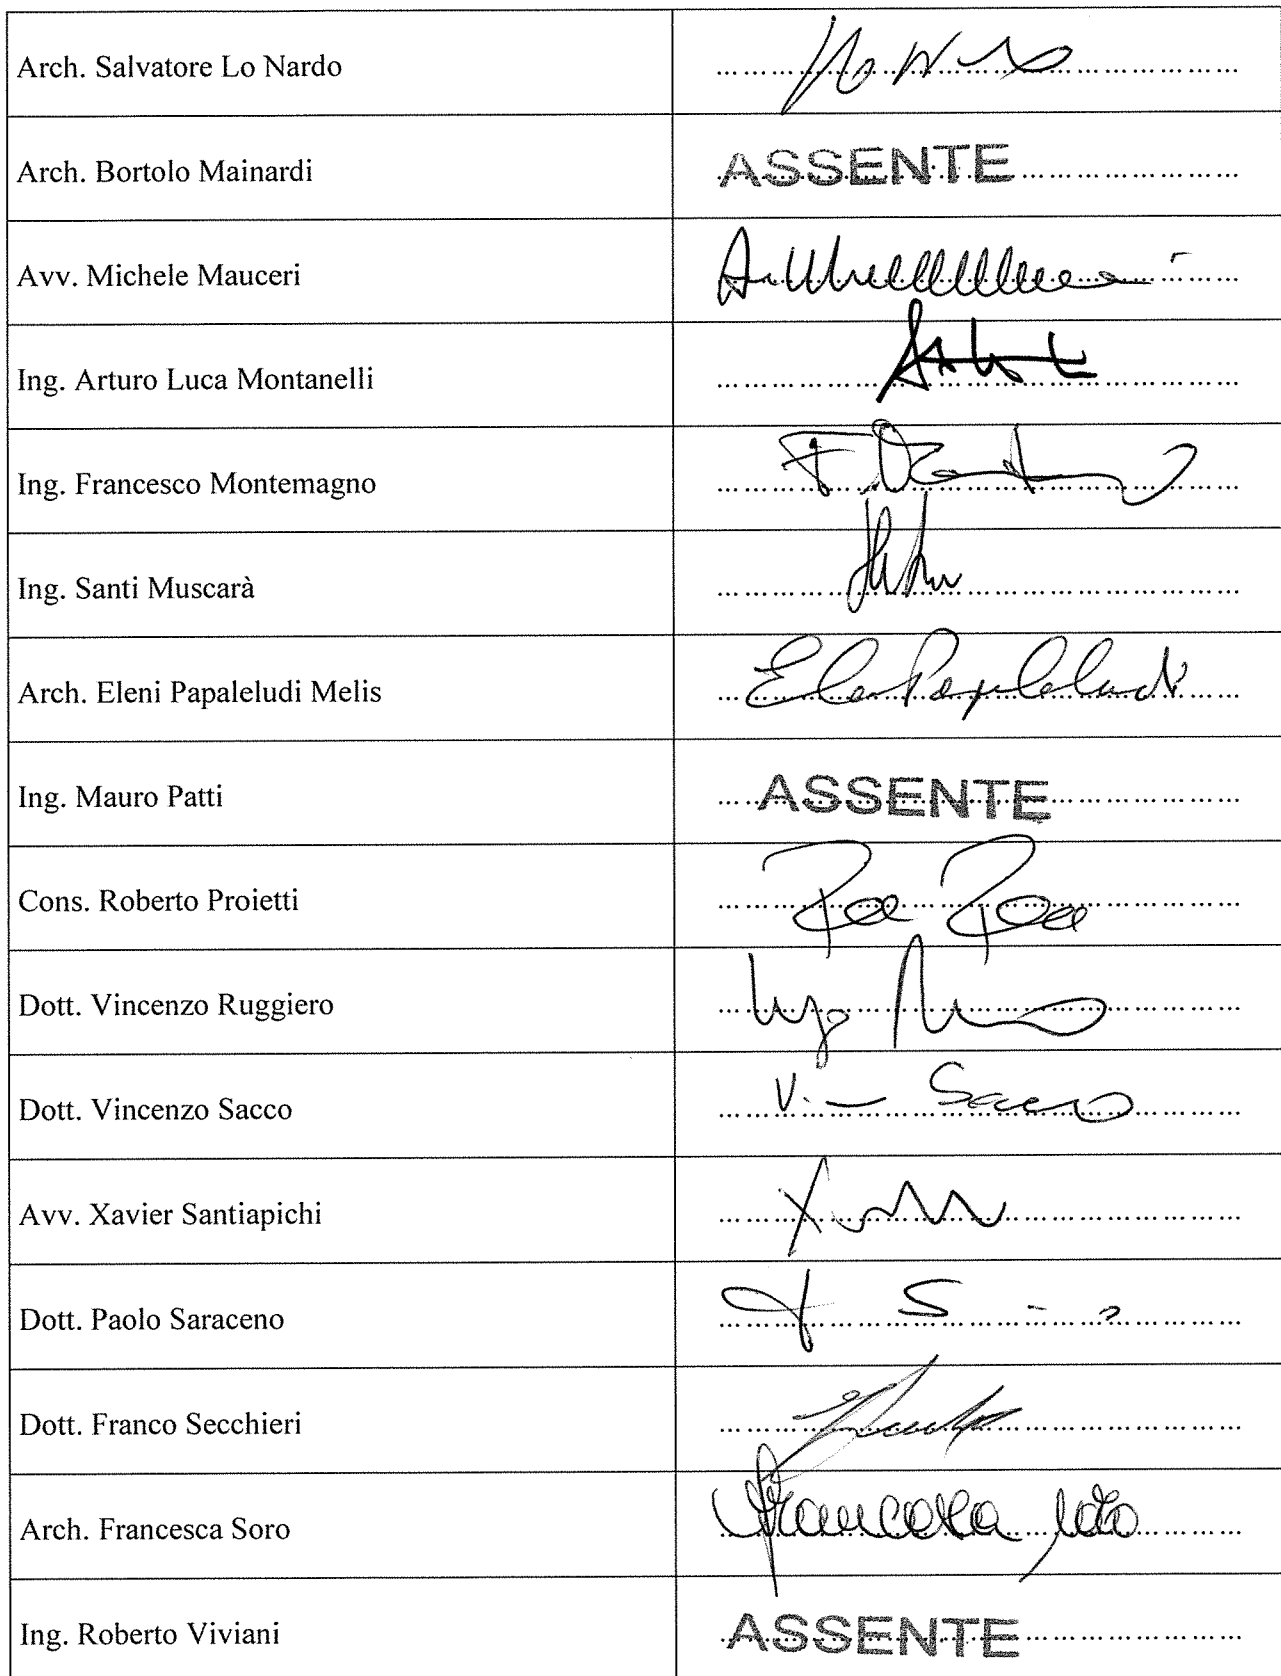 Arch. Salvatore Lo Nardo
Arch. Bortolo Mainardi ASSENTE
Avv. Michele Mauceri
Ing. Arturo Luca Montanelli
Ing. Francesco Montemagno
Ing. Santi Muscarà
Arch. Eleni Papaleludi Melis Papaleludi
Ing. Mauro Patti ASSENTE
Cons. Roberto Proietti
Dott. Vincenzo Ruggiero
Dott. Vincenzo Sacco V. Sacco
Avv. Xavier Santiapichi
Dott. Paolo Saraceno
Dott. Franco Secchieri
Arch. Francesca Soro Francesca Soro
Ing. Roberto Viviani ASSENTE